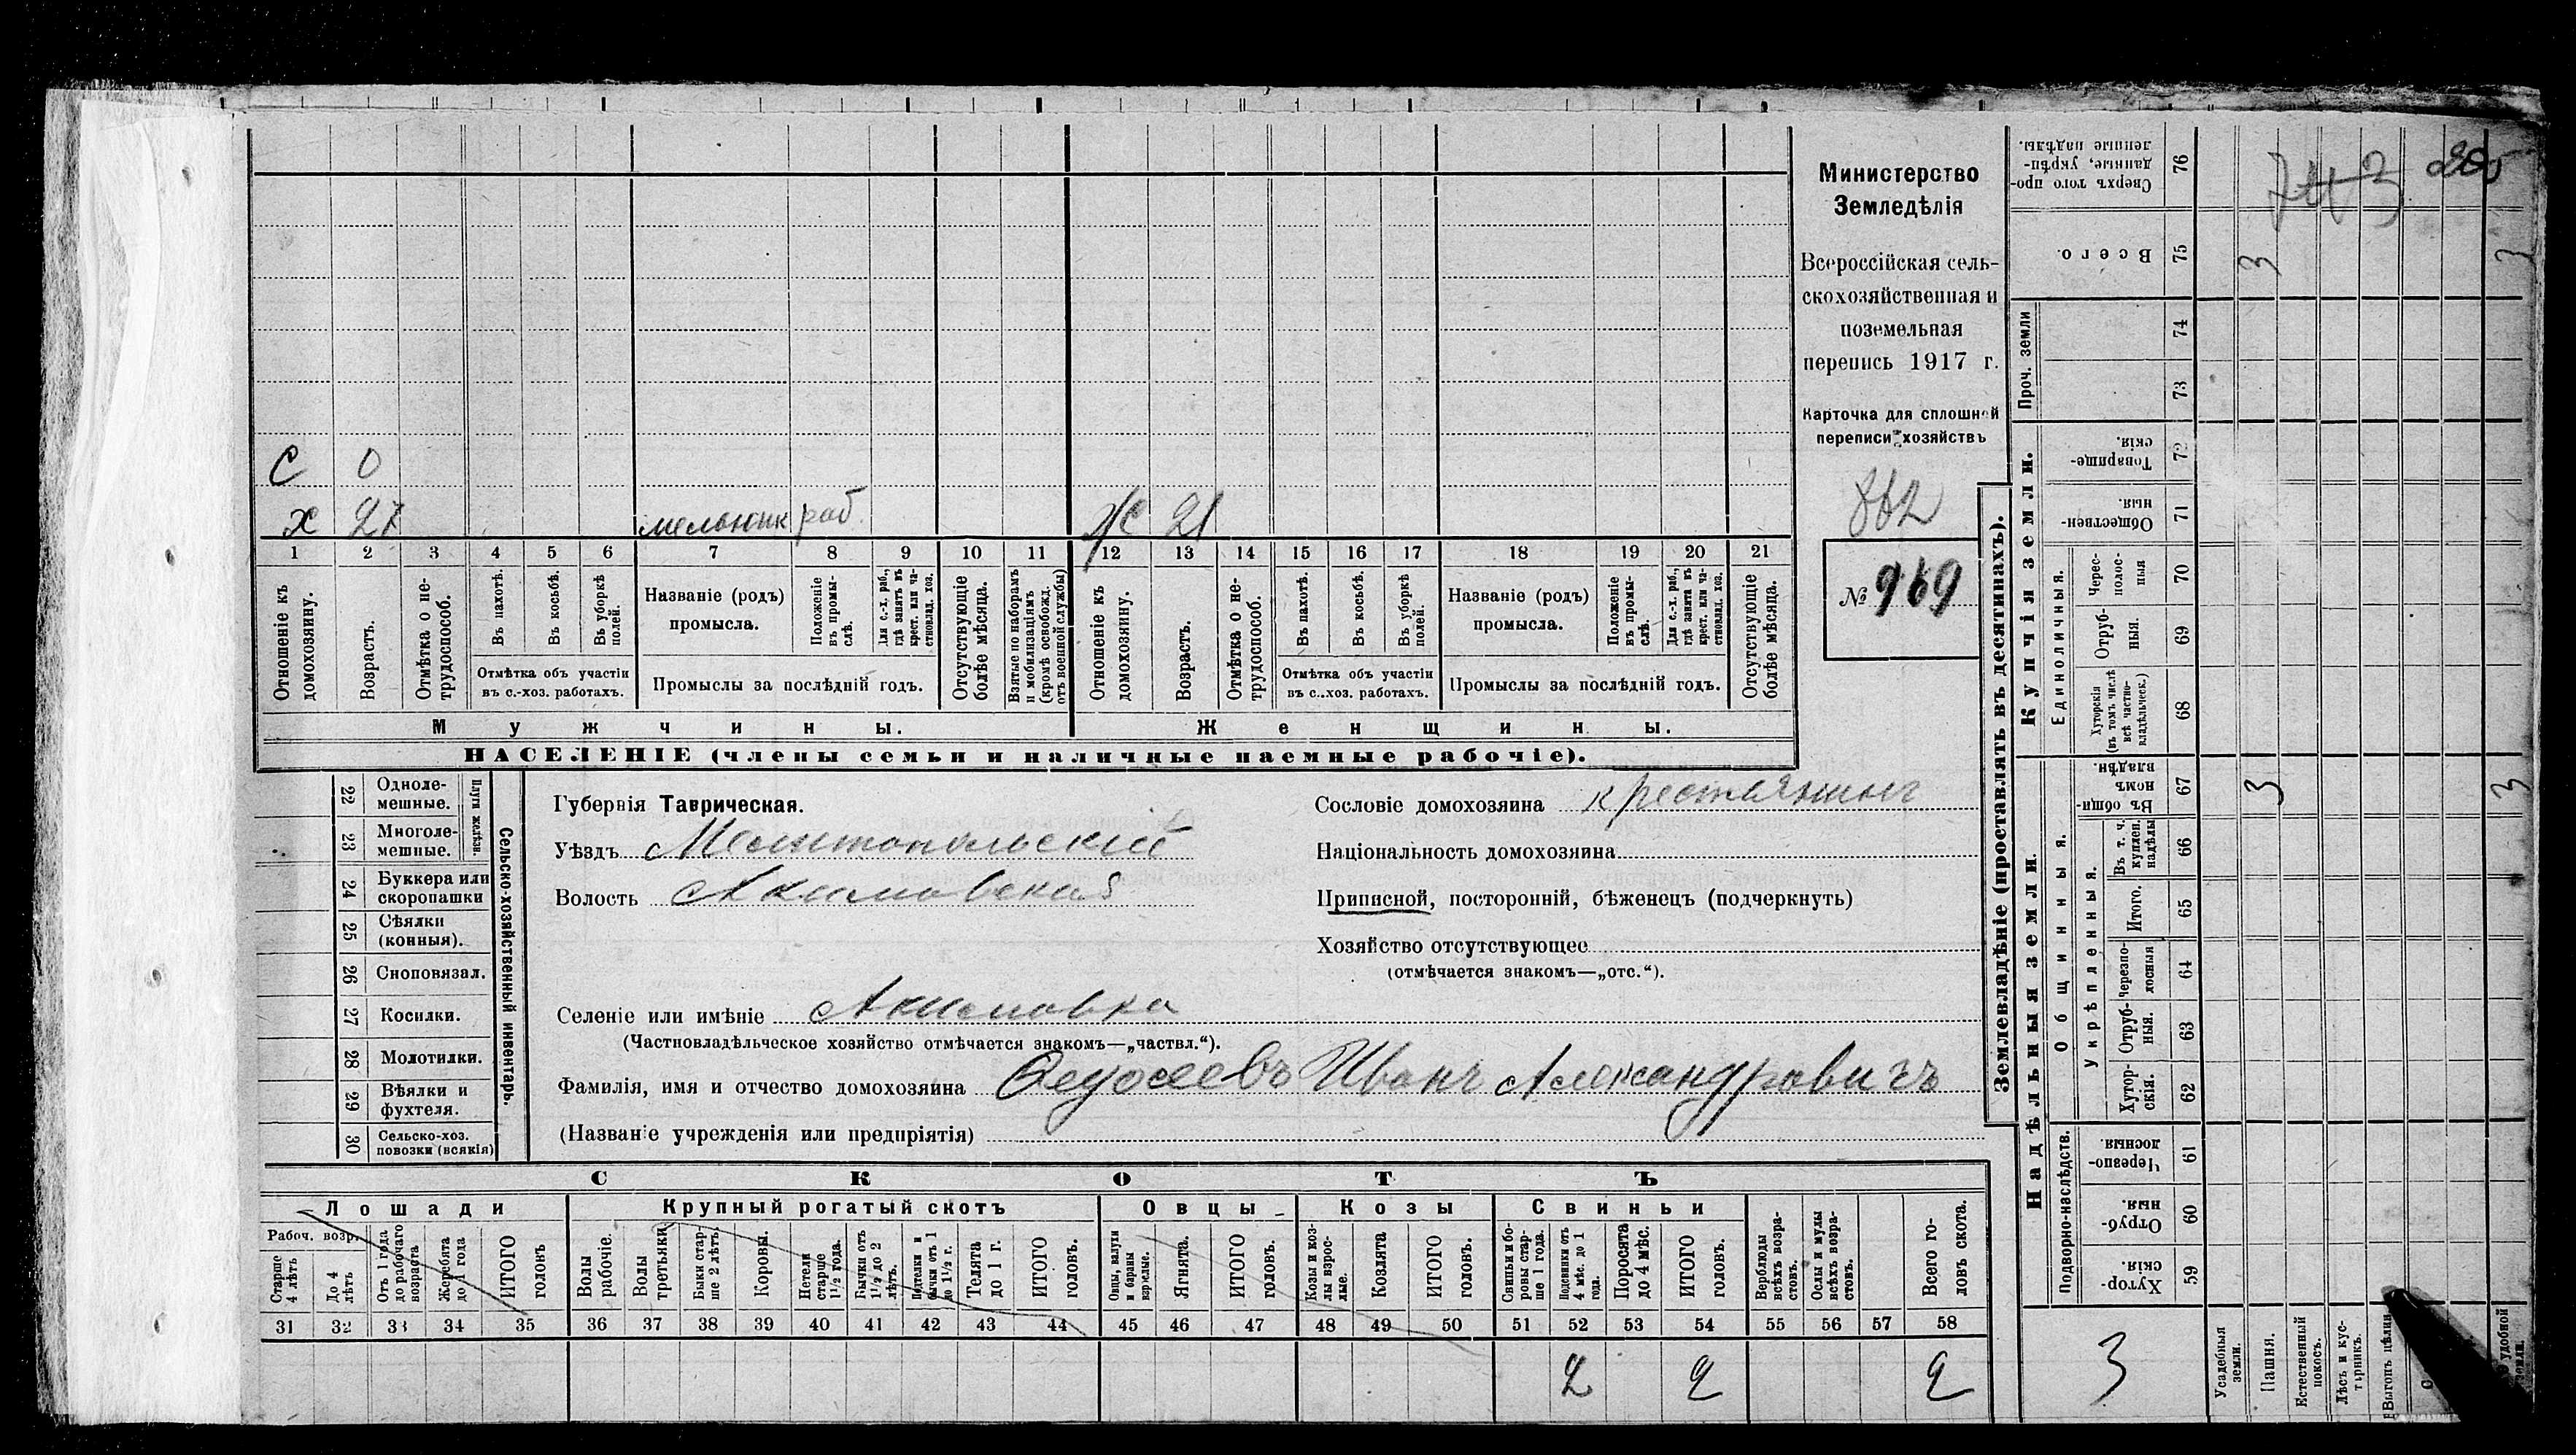 С 0
Х 27 мельник раб. Ж 21
1 2 3 4 5 6 7 8 9 10 11 12 13 14 15 16 17 18 19 20 21
Отношеніе къ домохозяину.
Возрастъ.
Отмѣтка о не-
трудоспособ.
Въ пахотѣ.
Въ косьбѣ.
Въ уборкѣ
полей.
Отмѣтка объ участіи
въ с.-хоз. работахъ.
Названіе (родъ)
промысла.
Положеніе
въ промы-
слѣ.
Для с.-х. раб.,
гдѣ занятъ въ
крест. или ча-
стновлад. хоз.
Промыслы за послѣдній годъ.
Отсутствующіе
болѣе мѣсяца.
Взятые по наборамъ
и мобилизаціямъ
(кромѣ освобожд.
отъ военной службы)
Отношеніе къ
домохозяину.
Возрастъ.
Отмѣтка о не-
трудоспособ.
Въ пахотѣ.
Въ косьбѣ.
Въ уборкѣ
полей.
Отмѣтка объ участіи
въ с.-хоз. работахъ.
Названіе (родъ)
промысла.
Положеніе
въ промы-
слѣ.
Для с.-х. раб.,
гдѣ занята въ
крест. или ча-
стновлад. хоз.
Промыслы за послѣдній годъ.
Отсутствующіе
болѣе мѣсяца.
Мужчины.
Женщины.
НАСЕЛЕНІЕ (члены семьи и наличные наемные рабочіе).
Министерство
Земледѣлія
Всероссійская сель-
скохозяйственная и
поземельная
перепись 1917 г.
Карточка для сплошной
переписи хозяйствъ
882
№ 969
22 Одноле-
мешные.
23 Многоле-
мешные.
Плуги желѣзн.
24 Буккера или
скоропашки
25 Сѣялки
(конныя).
26 Сноповязал.
27 Косилки.
28 Молотилки.
29 Вѣялки и
фухтеля.
30 Сельско-хоз.
повозки (всякія)
Сельско-хозяйственный инвентарь.
Губернія Таврическая.
Уѣздъ Мелитопольскій
Волость Акимовская
Селеніе или имѣніе Акимовка
(Частновладѣльческое хозяйство отмѣчается знакомъ—„частвл.“).
Фамилія, имя и отчество домохозяина Ѳедосеевъ Иванъ Александровичъ
(Названіе учрежденія или предпріятія)
Сословіе домохозяина крестьянинъ
Національность домохозяина
Приписной, посторонній, бѣженецъ (подчеркнуть)
Хозяйство отсутствующее
(отмѣчается знакомъ—„отс.“).
СКОТЪ
Лошади
Крупный рогатый скотъ
Овцы
Козы
Свиньи
Рабоч. возр.
Старше
4 лѣтъ
До 4
лѣтъ
Отъ 1 года
до рабочаго
возраста
Жеребята
до 1 года
ИТОГО
головъ
Волы
рабочіе.
Волы
третьяки
Быки стар-
ше 2 лѣтъ.
Коровы.
Нетели
старше
1½ года.
Бычки отъ
1½ до 2
лѣтъ.
Подтелки и
бычки отъ 1
до 1½ г.
Телята
до 1 г.
ИТОГО
головъ.
Овцы, валухи
и бараны
взрослые.
Ягнята.
ИТОГО
головъ.
Козы и коз-
лы взрос-
лые.
Козлята
ИТОГО
головъ.
Свиньи и бо-
ровы стар-
ше 1 года.
Подсвинки отъ
4 мѣс. до 1
года.
Поросята
до 4 мѣс.
ИТОГО
головъ.
Верблюды
всѣхъ возра-
стовъ.
Ослы и мулы
всѣхъ возра-
стовъ.
Всего го-
ловъ скота.
31 32 33 34 35 36 37 38 39 40 41 42 43 44 45 46 47 48 49 50 51 52 53 54 55 56 57 58
2 2 2
Землевладѣніе (проставлять въ десятинахъ).
Купчія земли.
Надѣльныя земли.
Сверхъ того про-
данные, укрѣп-
ленные надѣлы.
76
743
205
Всего.
75
3
3
Проч. земли
74
73
Товарище-
скія.
72
Обществен-
ныя.
71
Единоличныя.
Черес-
полос-
ныя
70
Отруб-
ныя.
69
Хуторскія
(въ томъ числѣ
всѣ частно-
владѣльческ.)
68
Общинныя.
Въ общин-
номъ
владѣн.
67
3
3
Укрѣпленныя.
Въ т. ч.
куплен.
надѣлы
66
Итого.
65
Черезпо-
лосныя
64
Отруб-
ныя.
63
Хутор-
скія.
62
Подворно-наслѣдств.
Черезпо-
лосныя
61
Отруб-
ныя.
60
Хутор-
скія.
59
3
Усадебныя
земли.
Пашня.
Естественный
покосъ.
Лѣсъ и кус-
тарникъ.
Выгонъ цѣлин
удобной
земли.